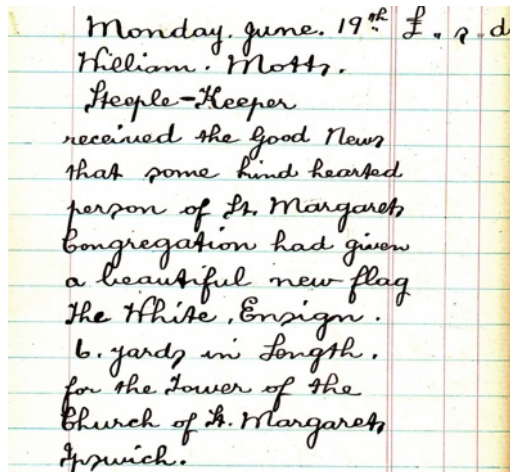 Monday. June. 19th £. s. d
William. Motts.
Steeple-Keeper
received the Good News
that some kind hearted
person of St. Margarets
Congregation had given
a beautiful new flag
The White. Ensign.
6. yards in Length.
for the Tower of the
Church of St. Margarets
Ipswich.